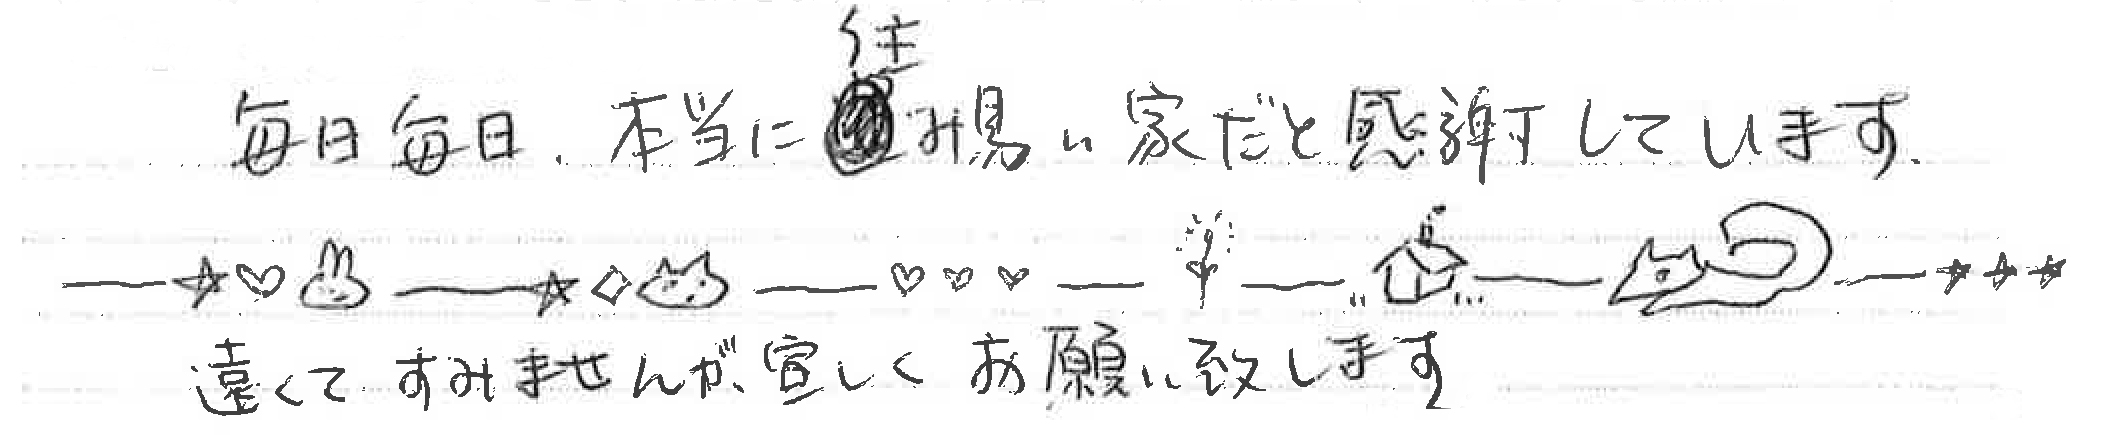 毎日毎日、本当に住み易い家だと感謝しています。
遠くてすみませんが、宜しくお願い致します